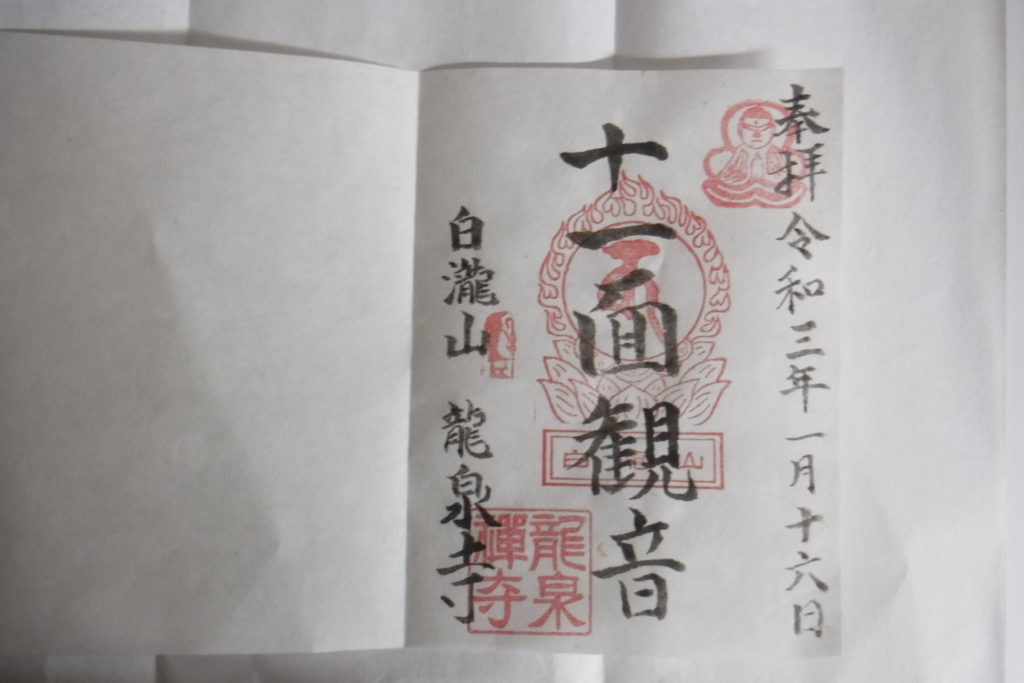 奉拝 令和三年一月十六日
十一面観音
白瀧山 龍泉寺
龍泉
禅寺